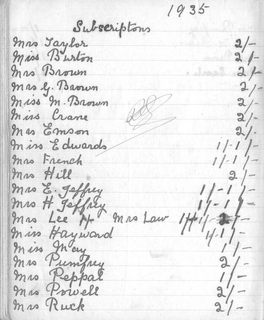 1935
Subscriptons
Mrs Taylor 2/-
Miss Burton 2/-
Mrs Brown 2/-
Mrs G. Brown 2/-
Miss M. Brown 2/-
Miss Crane 2/-
Mrs Emson 2/-
Miss Edwards 1/-1/-
Mrs French 1/-1/-
Mrs Hill 2/-
Mrs E. Jeffrey 1/-1/-
Mrs H. Jeffrey 1/-1/-
Mrs Lee H Mrs Law 2/-
Miss Hayward 1/-1/-
Miss 1/-
Mrs Pumfrey 2/-
Mrs Peppat 1/-
Mrs Powell 2/-
Mrs Ruck 2/-